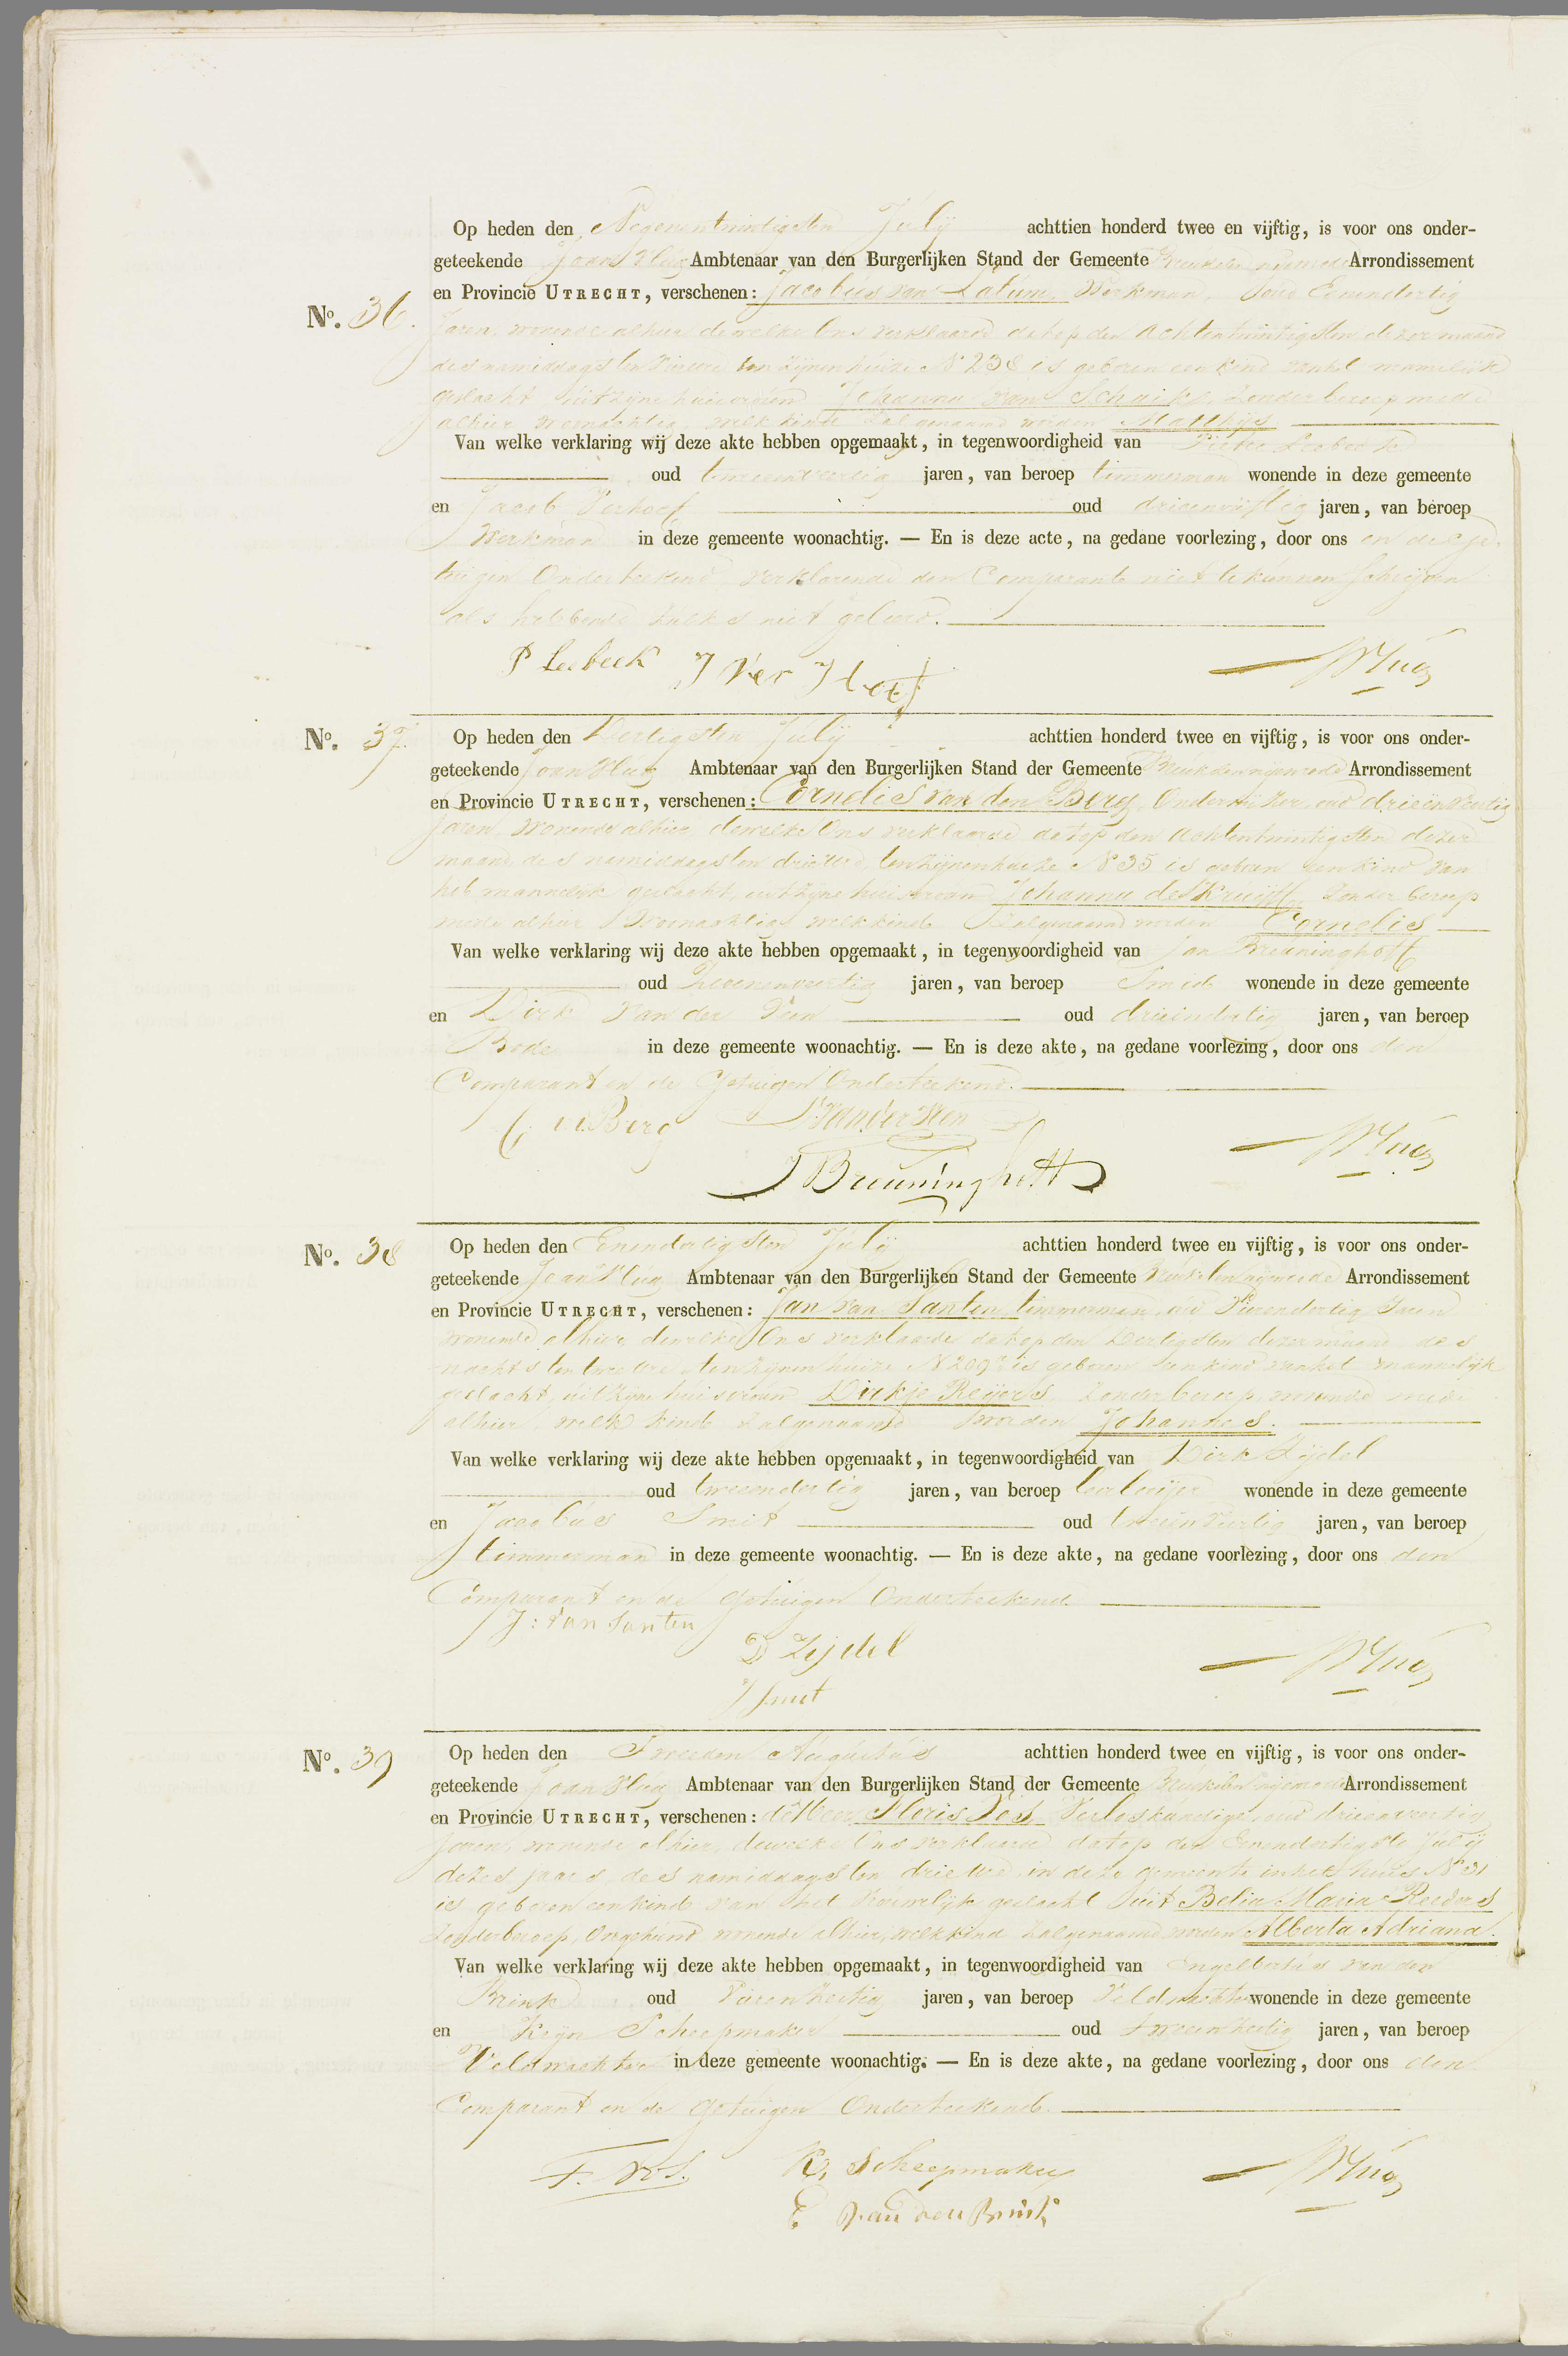 Op heden den Negenentwintigsten Julij achttien honderd twee en vijftig, is voor ons onder-
geteekende Joan Hug Ambtenaar van den Burgerlijken Stand der Gemeente Breukelen nijenrode Arrondissement
en Provincie UTRECHT, verschenen: Jacobus van Latum, Werkman, oud Eenendertig
No. 36.
Jaren, wonende alhier dewelke Ons verklaarde dat op den Achtentwintigsten dezer maand
des namiddags ten vier ure ten zijnen huize No 238 is geboren een kind van het mannelijk
geslacht uit zijne huisvrouw Johanna van Schaik, zonder beroep mede
alhier woonachtig, welk kind zal genaamd worden Matthijs
Van welke verklaring wij deze akte hebben opgemaakt, in tegenwoordigheid van Pieter Leebeek
oud tweeenveertig jaren, van beroep timmerman wonende in deze gemeente
en Jacob Verhoef oud drieenvijftig jaren, van beroep
Werkman in deze gemeente woonachtig. — En is deze acte, na gedane voorlezing, door ons en de ge-
tuigen Onderteekend, verklarende den Comparant niet te kunnen schrijven
als hebbende zulks niet geleerd.
P Leebeek J Ver Hoef
No. 37. Op heden den Dertigsten Julij achttien honderd twee en vijftig, is voor ons onder-
geteekende Joan Hug Ambtenaar van den Burgerlijken Stand der Gemeente Breukelen nijenrode Arrondissement
en Provincie UTRECHT, verschenen: Cornelis van den Berg, Onderwijzer, oud drieënveertig
Jaren, Wonende alhier dewelke Ons verklaarde dat op den Achtentwintigsten dezer
maand des namiddags ten drie ure, ten zijnen huize No 35 is geboren een kind van
het mannelijk geslacht, uit zijne huisvrouw Johanna de Kruijff, zonder beroep
mede alhier Woonachtig welk kind zal genaamd worden Cornelis
Van welke verklaring wij deze akte hebben opgemaakt, in tegenwoordigheid van Jan Breuninghoff
oud Zevenenveertig jaren, van beroep Smid wonende in deze gemeente
en Dirk van der Veen oud drieëndertig jaren, van beroep
Bode in deze gemeente woonachtig. — En is deze akte, na gedane voorlezing, door ons den
Comparant en de Getuigen Onderteekend.
C. vd Berg D vander Veen
J Breuninghoff
No. 38 Op heden den Eenendertigsten Julij achttien honderd twee en vijftig, is voor ons onder-
geteekende Joan Hug Ambtenaar van den Burgerlijken Stand der Gemeente Breukelen nijenrode Arrondissement
en Provincie UTRECHT, verschenen: Jan van Santen timmerman, oud Vierendertig Jaren
wonende alhier, dewelke Ons verklaarde dat op den Dertigsten dezer maand des
nachts ten twee ure ten zijnen huize No 209 is geboren een kind van het mannelijk
geslacht, uit zijne huisvrouw Dirkje Reijers, zonder beroep, wonende mede
alhier, welk kind zal genaamd worden Johannes.
Van welke verklaring wij deze akte hebben opgemaakt, in tegenwoordigheid van Dirk Zijdel
oud tweeendertig jaren, van beroep leerlooijer wonende in deze gemeente
en Jacobus Smit oud tweeënveertig jaren, van beroep
timmerman in deze gemeente woonachtig. — En is deze akte, na gedane voorlezing, door ons den
Comparant en de Getuigen Onderteekend
J: van Santen
D Zijdel
J Smit
No. 39 Op heden den Tweeden Augustus achttien honderd twee en vijftig, is voor ons onder-
geteekende Joan Hug Ambtenaar van den Burgerlijken Stand der Gemeente Breukelen nijenrode Arrondissement
en Provincie UTRECHT, verschenen: de Heer Floris Vos, Verloskundige, oud drieenveertig
Jaren, wonende alhier, dewelke Ons verklaarde dat op den Eenendertigste Julij
dezes jaars, des namiddags ten drie ure, in deze gemeente in het huis No 31
is geboren een kind van het Vrouwelijk geslacht uit Belia Maria Reeders
Zonder beroep, Ongehuwd wonende alhier, welk kind zal genaamd worden Alberta Adriana.
Van welke verklaring wij deze akte hebben opgemaakt, in tegenwoordigheid van Engelbertus van den
Brink oud jaren, van beroep Veldwachter wonende in deze gemeente
en Krijn Scheepmaker oud jaren, van beroep
Veldwachter in deze gemeente woonachtig. — En is deze akte, na gedane voorlezing, door ons den
Comparant en de Getuigen Onderteekend.
F. Vos. K, Scheepmaker
E van den Brink